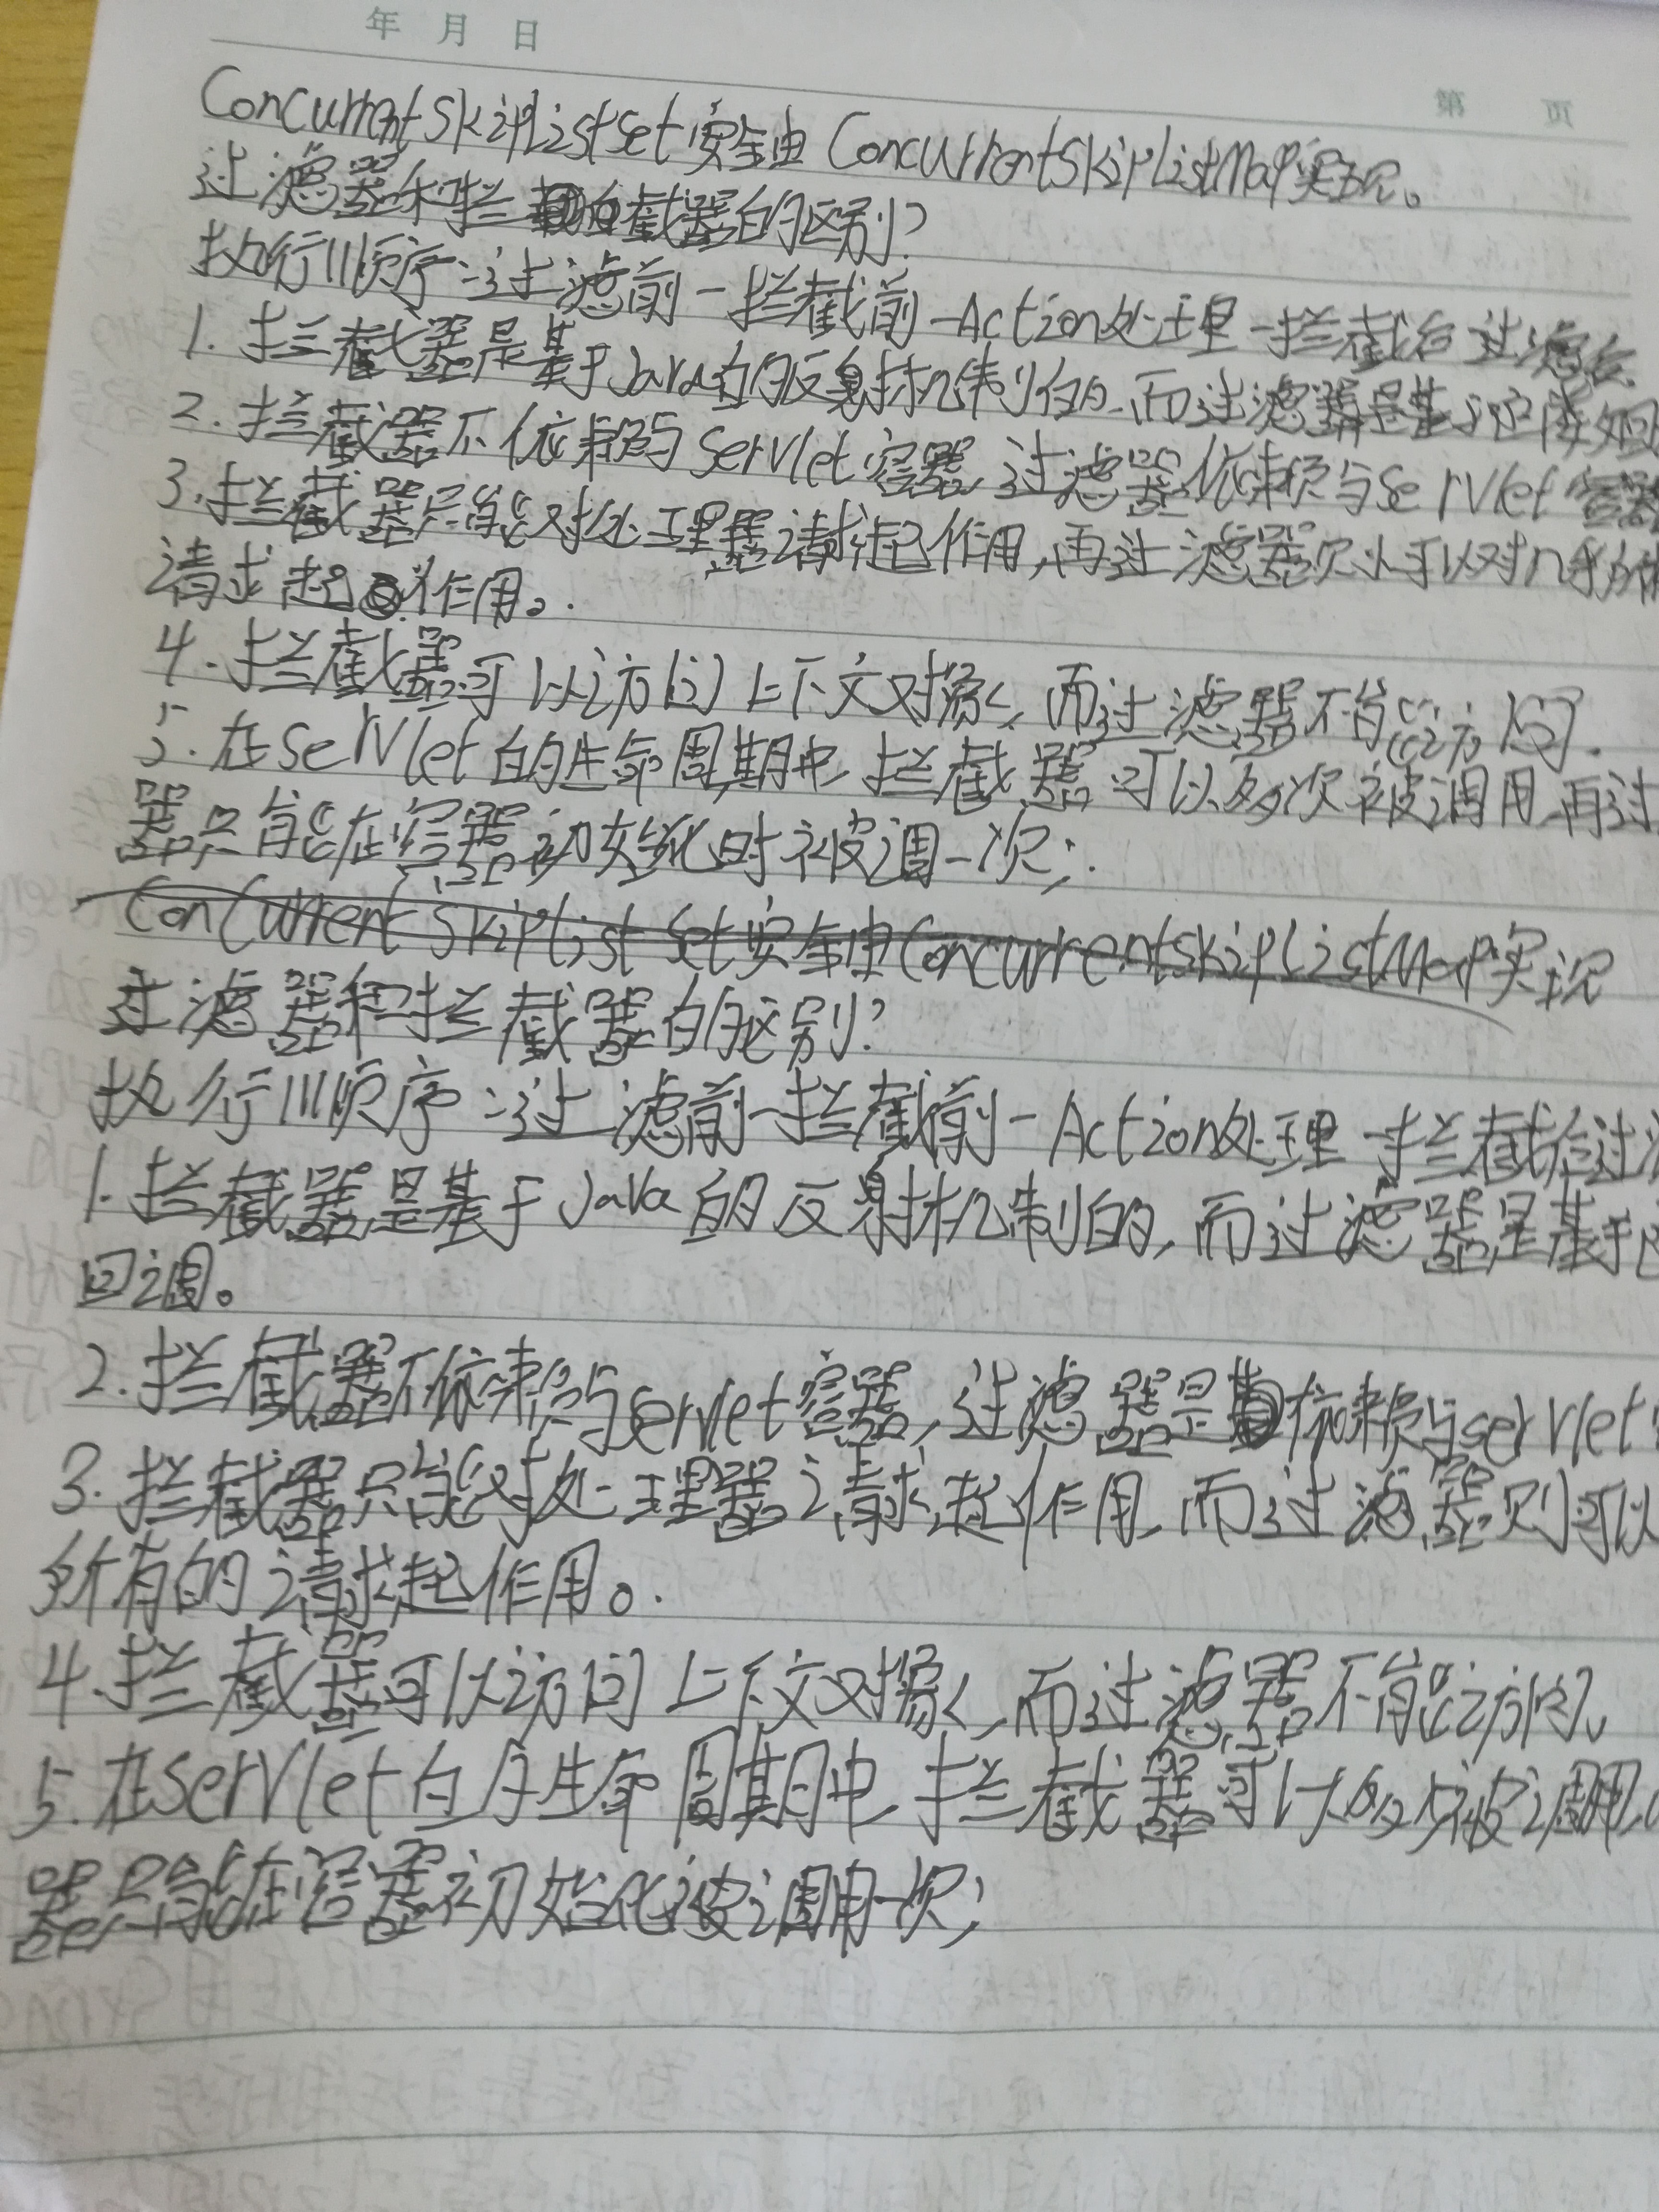 年 月 日
第 页
ConcurrentSkipListSet安全由ConcurrentSkipListMap实现。
过滤器和拦截器的区别?
执行顺序:过滤前-拦截前-Action处理-拦截后 过滤后
1.拦截器是基于Java的反射机制的,而过滤器是基于
2.拦截器不依赖与Servlet容器,过滤器依赖与Servlet容器
3.拦截器只能对处理器请求起作用,再过滤器则可以对几乎所有
请求起作用。
4.拦截器可以访问上下文对象,而过滤器不能访问.
5.在Servlet的生命周期中,拦截器可以多次被调用,再过
器只能在容器初始化时被调一次;
ConCurrentSkipListSet安全由ConcurrentSkipListMap实现
过滤器和拦截器的区别?
执行顺序:过滤前-拦截前-Action处理-拦截后过
1.拦截器是基于Java的反射机制的,而过滤器是基于
回调。
2.拦截器不依赖与Servlet容器,过滤器是依赖与servlet
3.拦截器只能对处理器请求起作用,而过滤器则可以
所有的请求起作用。
4.拦截器可以访问上下文对象,而过滤器不能访问。
5.在Servlet的生命周期中,拦截器可以多次被调用,
器只能在容器初始化被调用一次;